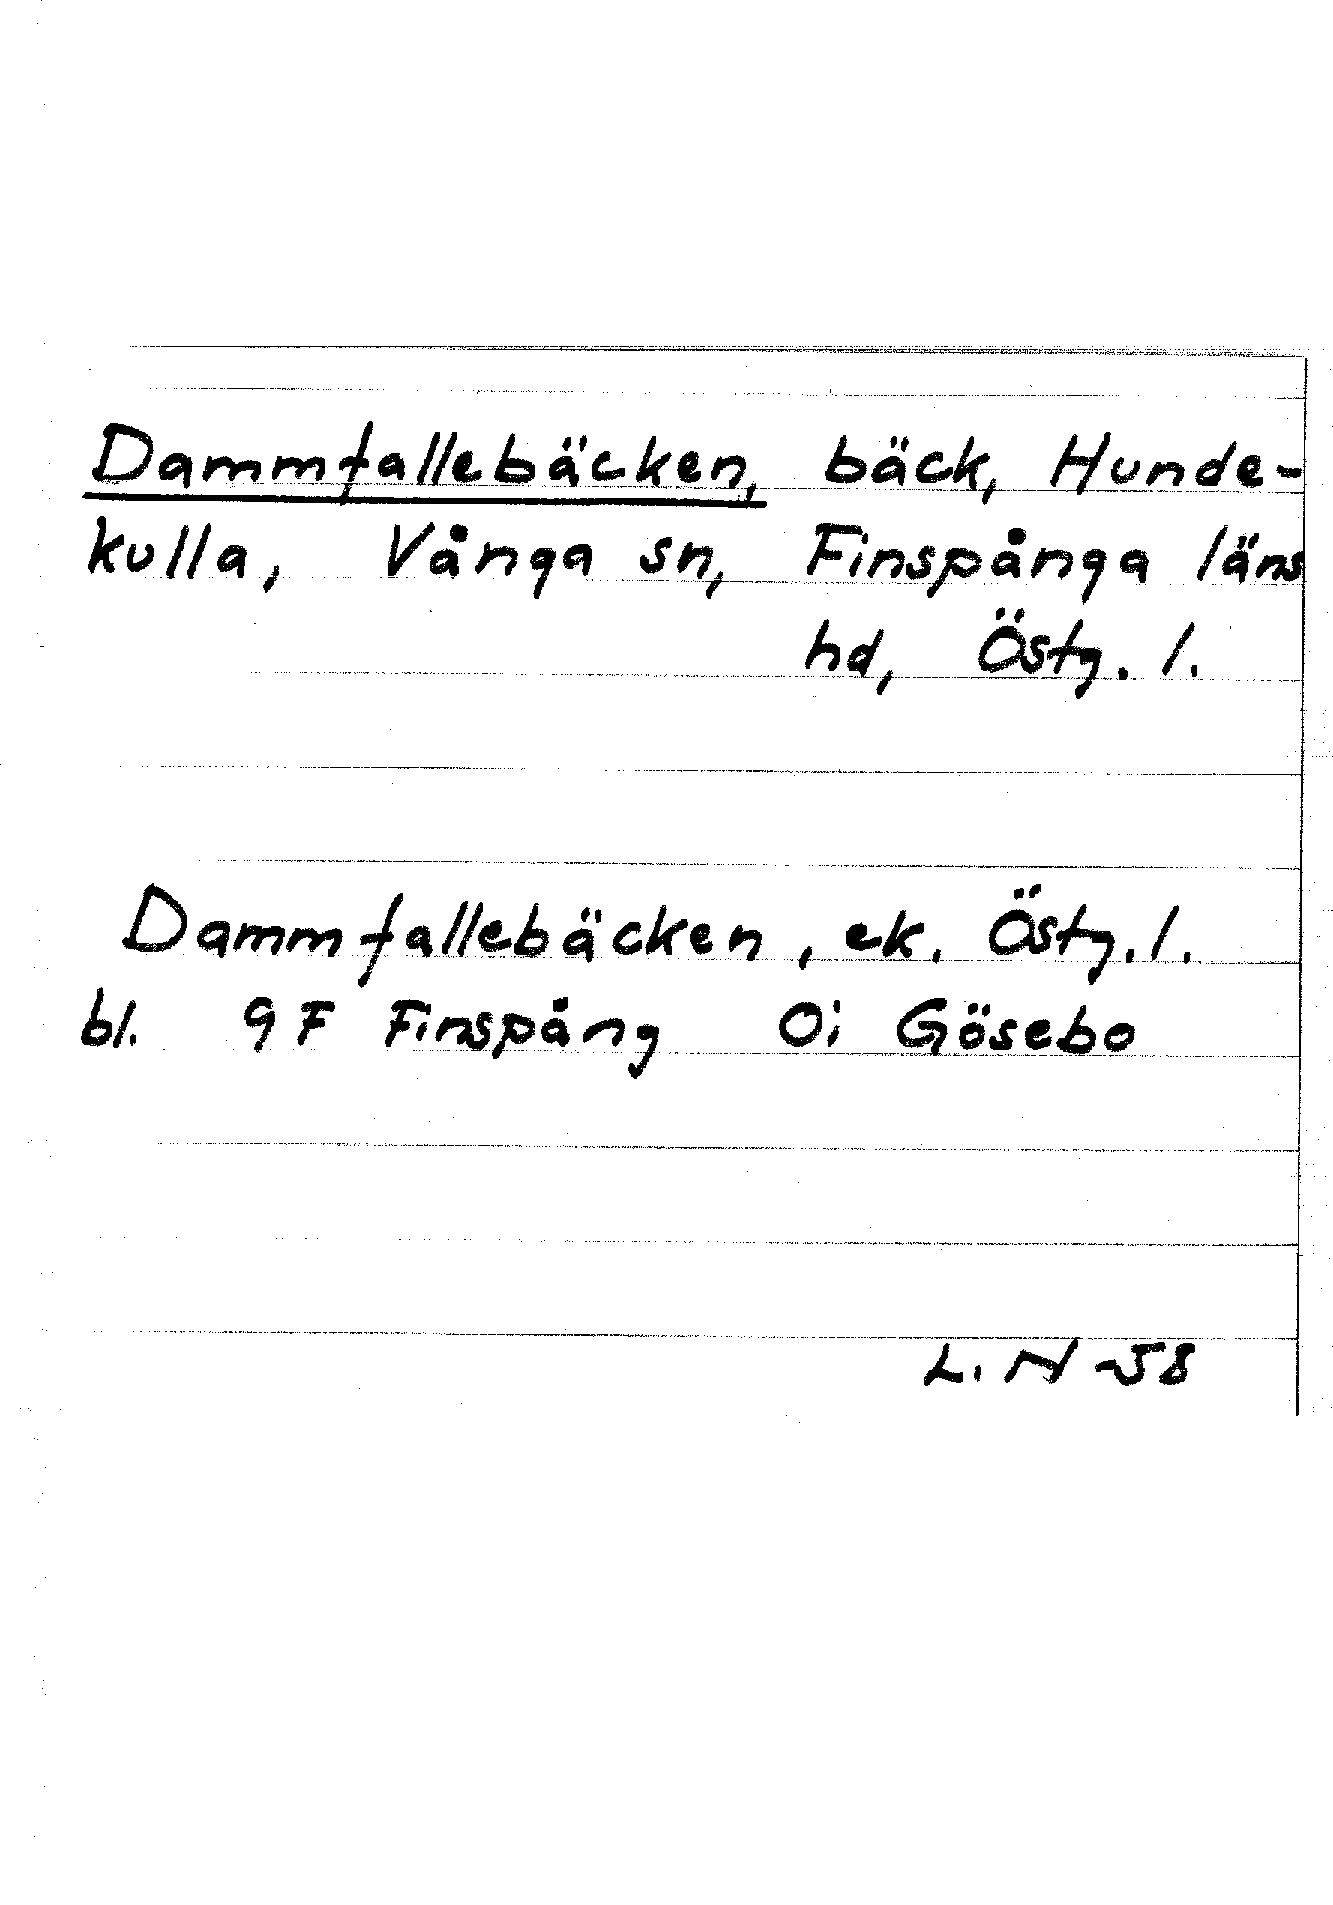 Dammfallebäcken, bäck, Hunde-
kulla, Vånga sn, Finspånga läns
hd, Östg. l.
Dammfallebäcken, ek. Östg. l.
bl. 9F Finspång 0i Gösebo
L. N -58